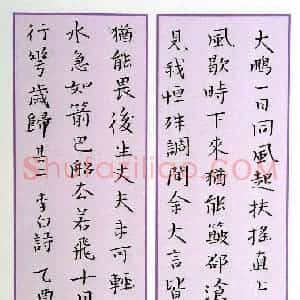 大鵬一日同風起扶搖直上
風歇時下來猶能簸却滄
見我恒殊調聞余大言皆
猶能畏後生丈夫未可輕
水急如箭巴船去若飛十月
行幾歲歸 李白詩 乙酉
Shufaziliao.com